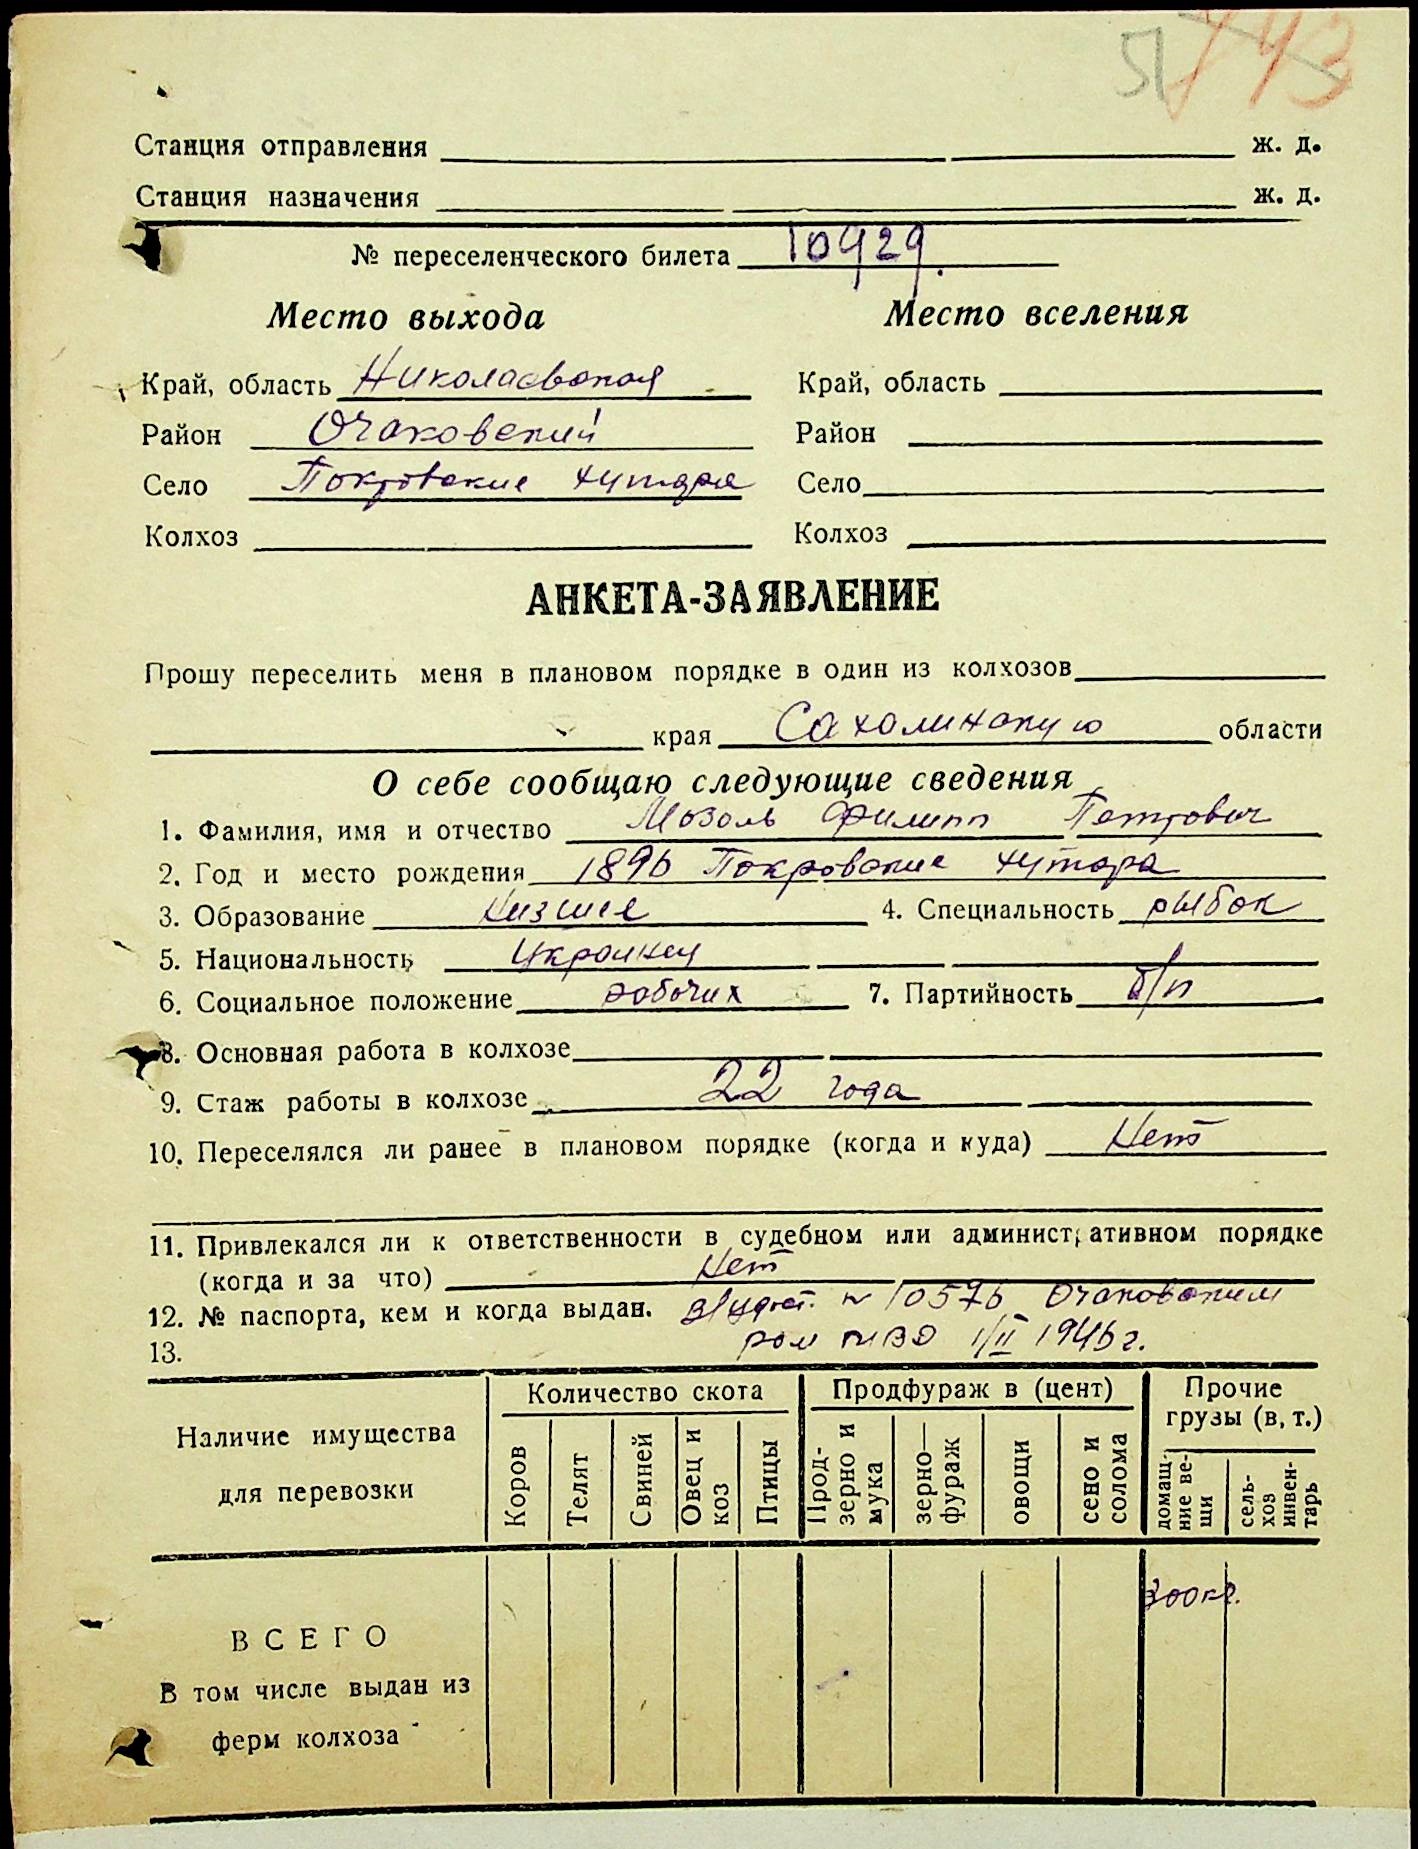 51 743
Станция отправления ж. д.
Станция назначения ж. д.
№ переселенческого билета 10929.
Место выхода Место вселения
Край, область Николаевская Край, область
Район Очаковский Район
Село Покровские хутора Село
Колхоз Колхоз
АНКЕТА-ЗАЯВЛЕНИЕ
Прошу переселить меня в плановом порядке в один из колхозов
края Сахалинскую области
О себе сообщаю следующие сведения
1. Фамилия, имя и отчество Мозоль Филипп Петрович
2. Год и место рождения 1896 Покровские хутора
3. Образование Низшее 4. Специальность рыбак
5. Национальность Украинец
6. Социальное положение рабочих 7. Партийность б/п
8. Основная работа в колхозе
9. Стаж работы в колхозе 22 года
10. Переселялся ли ранее в плановом порядке (когда и куда) Нет
11. Привлекался ли к ответственности в судебном или административном порядке
(когда и за что) Нет
12. № паспорта, кем и когда выдан. № 10576 Очаковским
13. МВД 1/II 1946 г.
Наличие имущества для перевозки
Количество скота
Коров
Телят
Свиней
Овец и коз
Птицы
Продфураж в (цент)
Прод-зерно и мука
зерно—фураж
овощи
сено и солома
Прочие грузы (в, т.)
домаш-ние ве-щи
сель-хоз инвен-тарь
ВСЕГО 300 кг.
В том числе выдан из
ферм колхоза